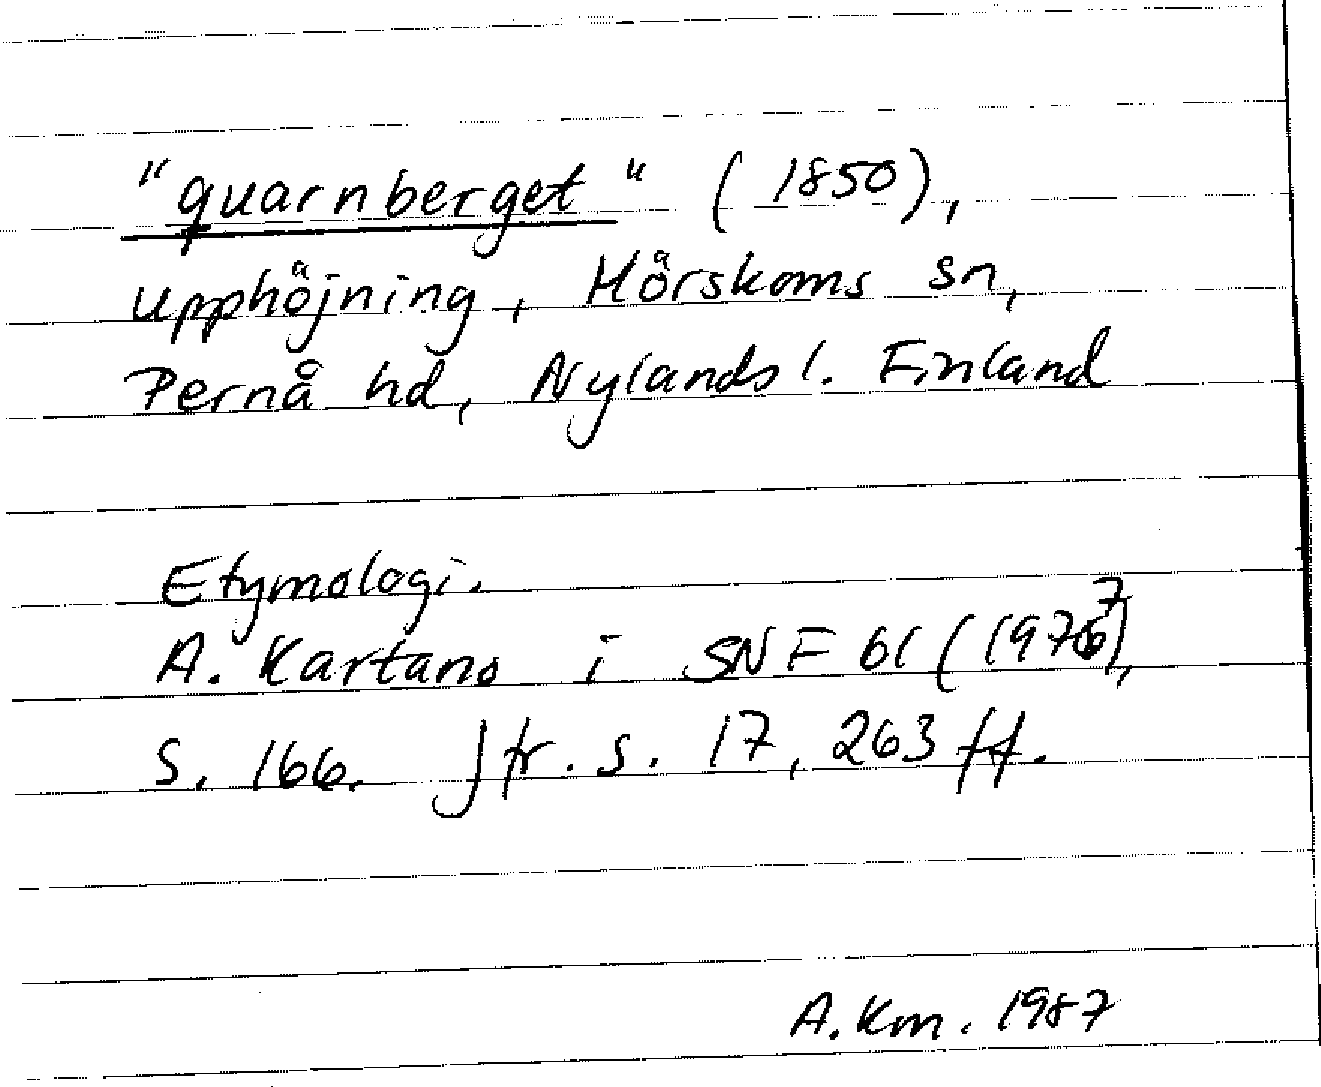 "quarnberget" (1850),
upphöjning, Mörskoms sn,
Pernå hd, Nylands l. Finland
Etymologi.
A. Kartano i SNF 61 (1977),
S. 166. Jfr. s. 17, 263 ff.
A. Km. 1987